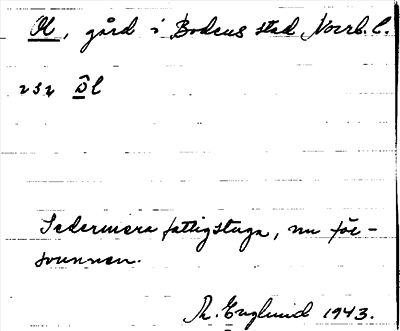 Öl, gård i Bodens stad Norrb. l.
Sedermera fattigstuga, nu för-
svunnen.
Th. Englund 1943.